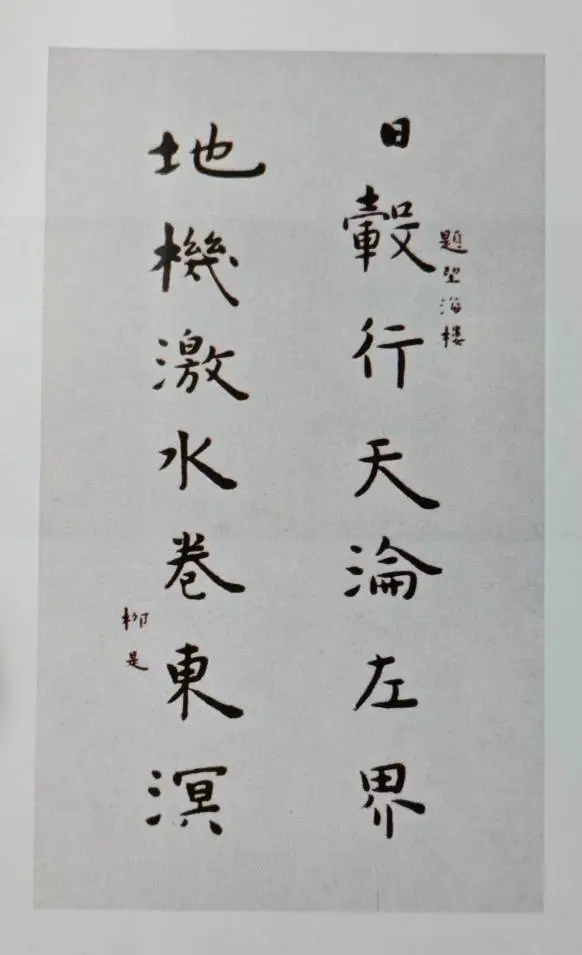 題望海楼
日轂行天淪左界
地機激水卷東溟
柳是